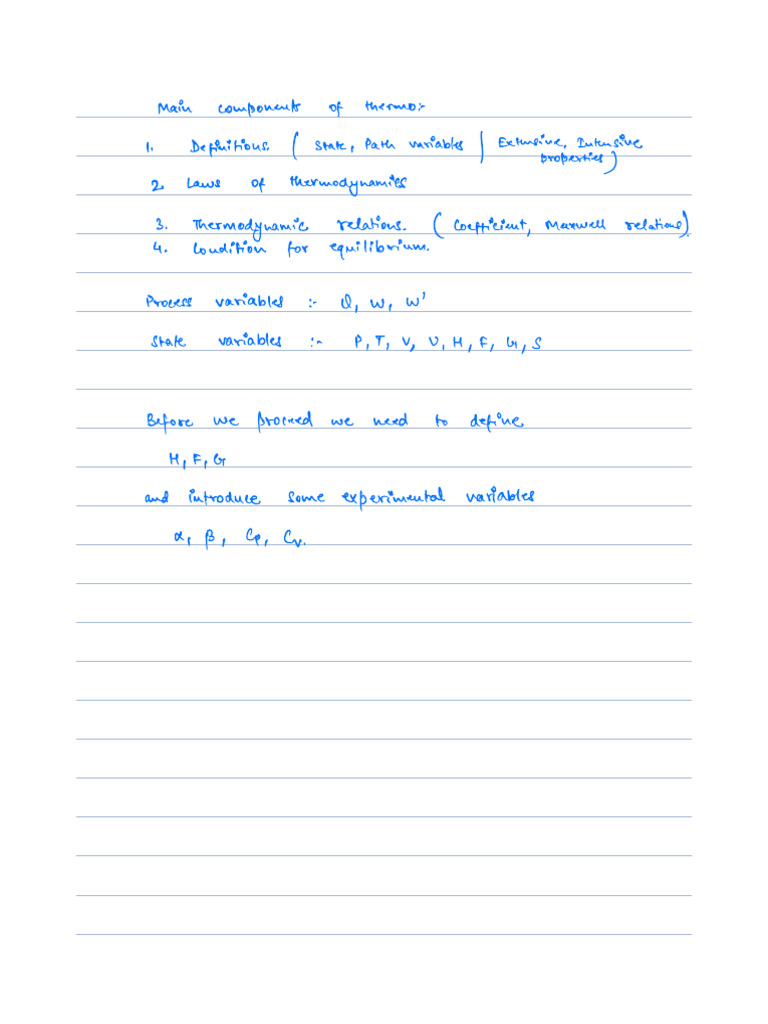 Main components of thermo:-
1. Definitions. ( State, Path variables | Extensive, Intensive
properties)
2. Laws of thermodynamics
3. Thermodynamic relations. ( Coefficient, Maxwell relations).
4. Condition for equilibrium.
Process variables :- Q, W, W'
State variables :- P, T, V, U, H, F, G, S
Before we proceed we need to define
H, F, G
and introduce some experimental variables
α, β, Cp, Cv.